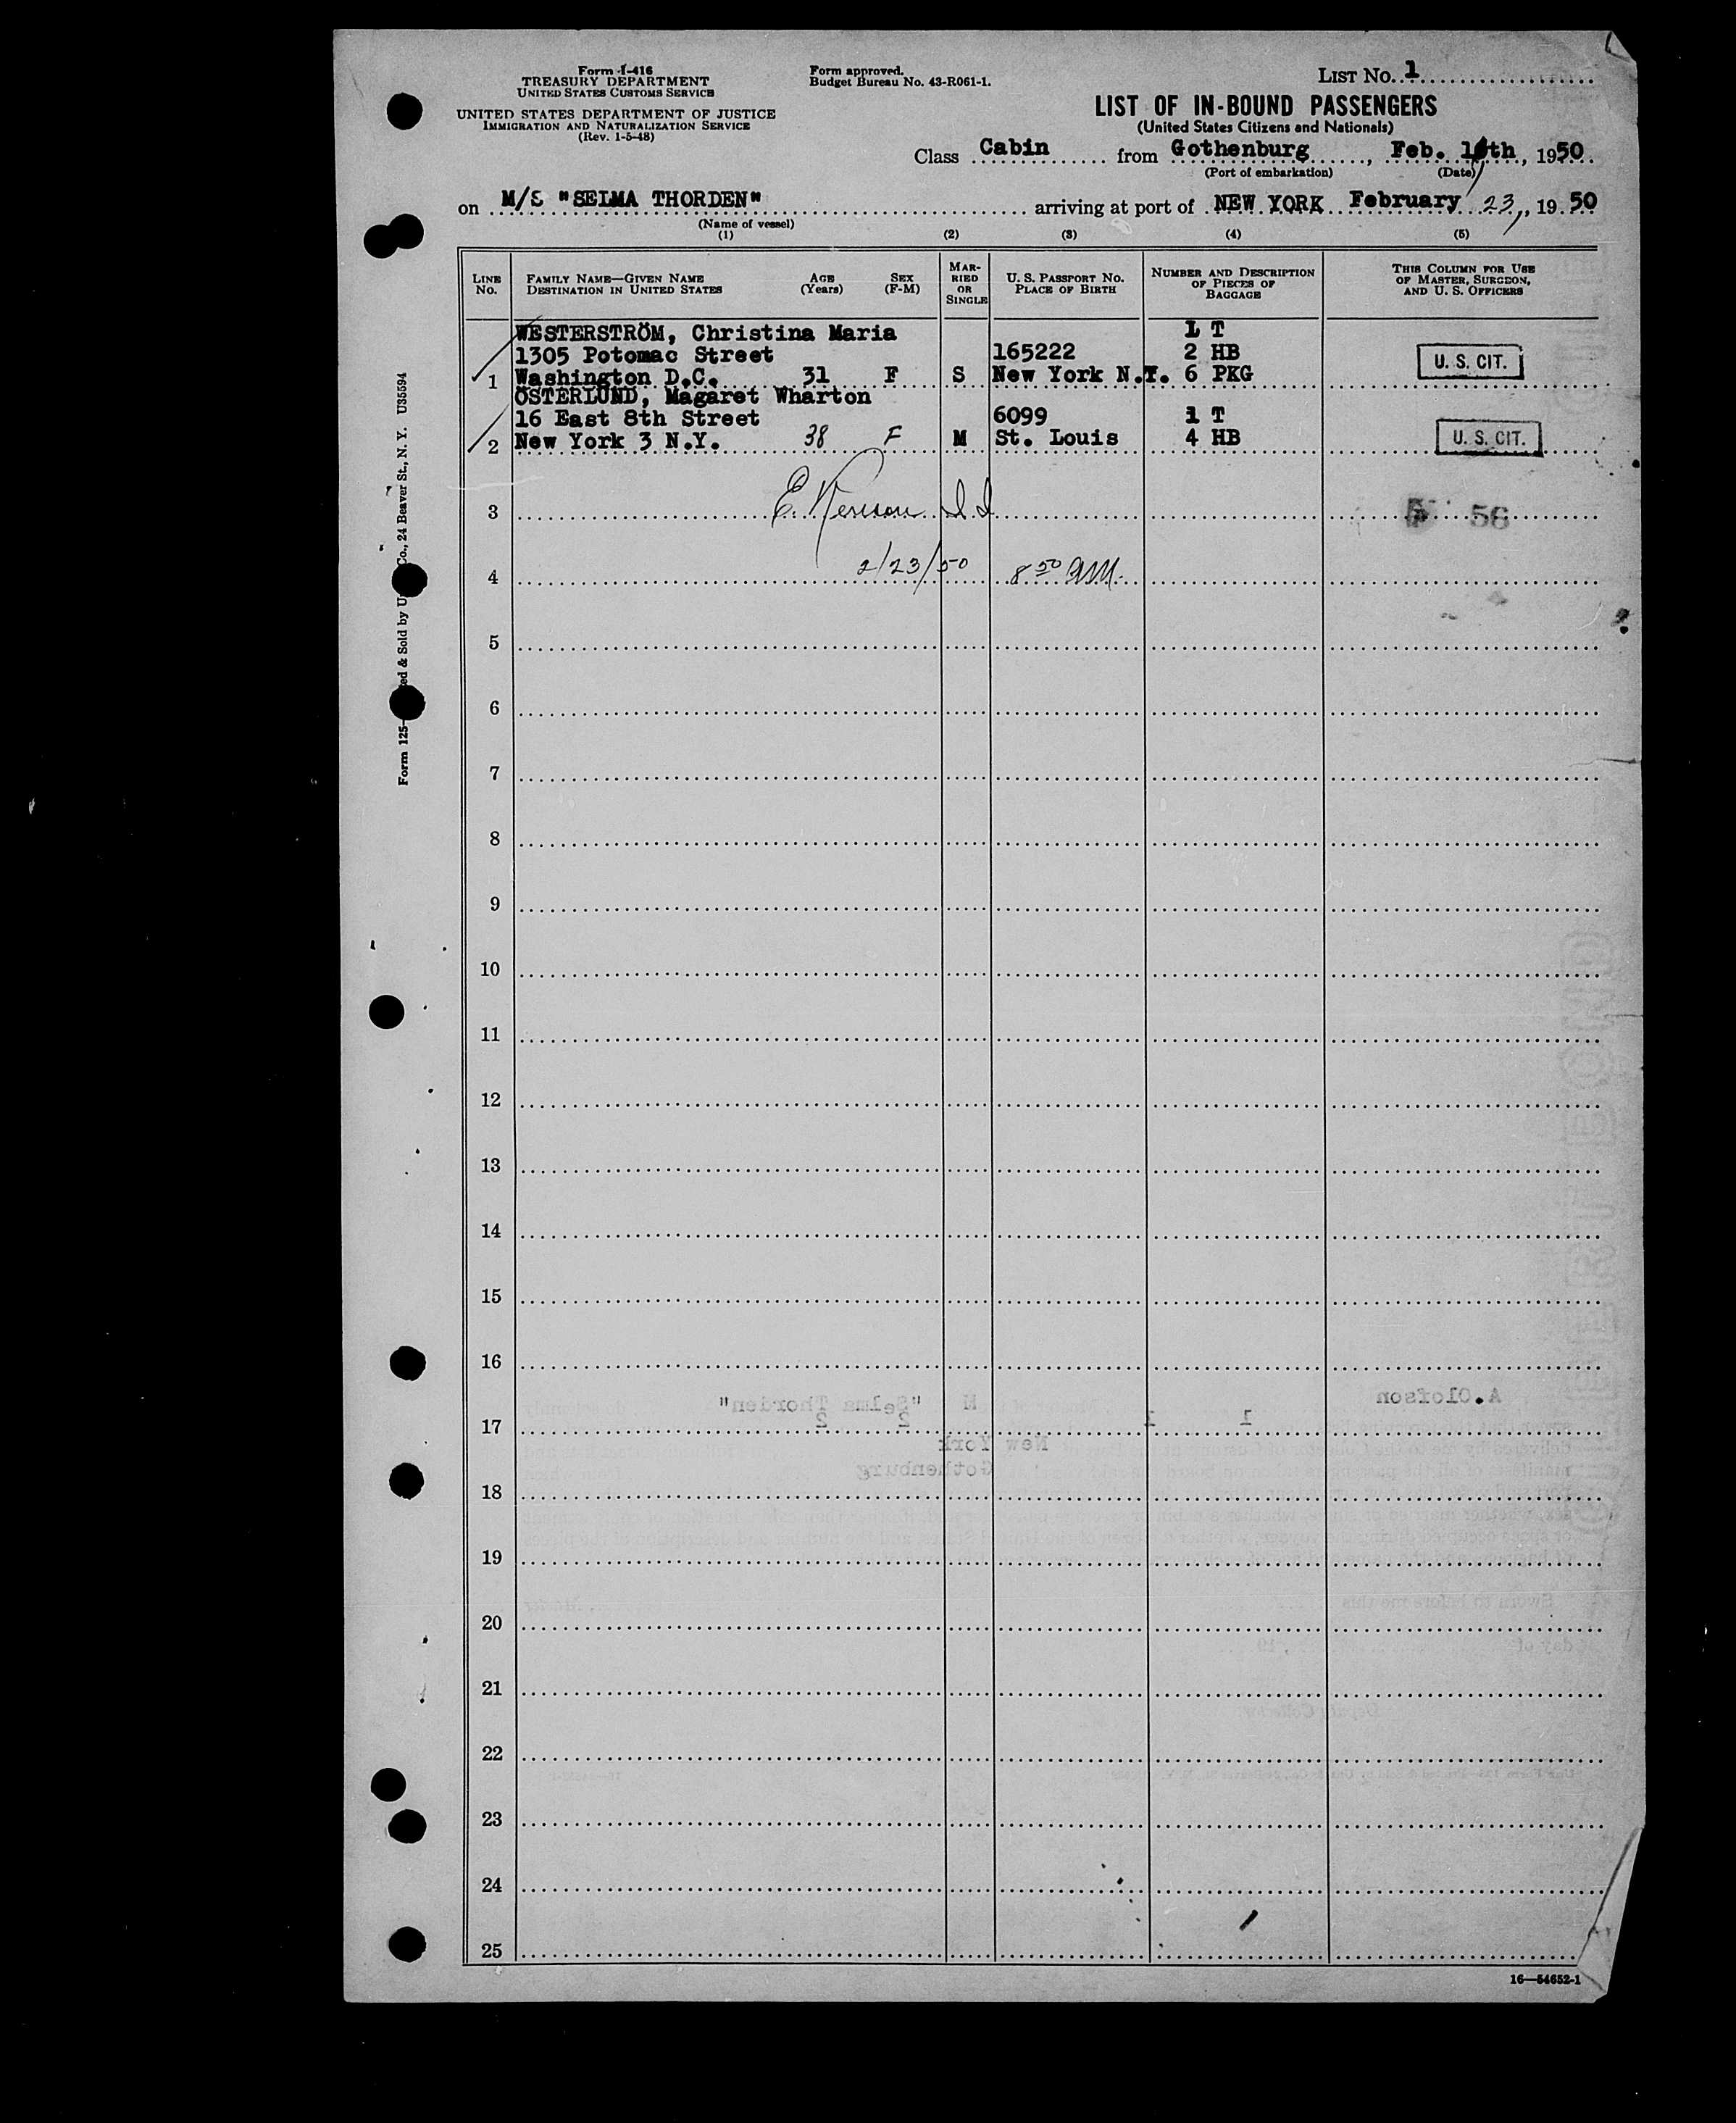 Form I-416
TREASURY DEPARTMENT
UNITED STATES CUSTOMS SERVICE
UNITED STATES DEPARTMENT OF JUSTICE
IMMIGRATION AND NATURALIZATION SERVICE
(Rev. 1-5-48)
Form approved.
Budget Bureau No. 43-R061-1.
LIST NO. 1
LIST OF IN-BOUND PASSENGERS
(United States Citizens and Nationals)
Class Cabin from Gothenburg, Feb. th, 1950
(Port of embarkation) (Date)
on M/S "SELMA THORDEN" arriving at port of NEW YORK February 23, 1950
(Name of vessel)
(1) (2) (3) (4) (5)
LINE No. FAMILY NAME—GIVEN NAME DESTINATION IN UNITED STATES AGE (Years) SEX (F-M) MARRIED OR SINGLE U. S. PASSPORT NO. PLACE OF BIRTH NUMBER AND DESCRIPTION OF PIECES OF BAGGAGE THIS COLUMN FOR USE OF MASTER, SURGEON, AND U. S. OFFICERS
WESTERSTRÖM, Christina Maria 1 T
1305 Potomac Street 165222 2 HB U. S. CIT.
1 Washington D.C. 31 F S New York N.Y. 6 PKG
ÖSTERLUND, Magaret Wharton
16 East 8th Street 6099 1 T
2 New York 3 N.Y. 38 F M St. Louis 4 HB U. S. CIT.
3 E. 5 56
4 2/23/50 8 50 AM.
5
6
7
8
9
10
11
12
13
14
15
16
A.Olofson
17 M "Selma Thorden" 1 1 2 2
New York
Gothenburg
18
19
20
21
22
23
24
25
16—54652-1
Form 125- ed & Sold by U Co., 24 Beaver St., N. Y. U35594